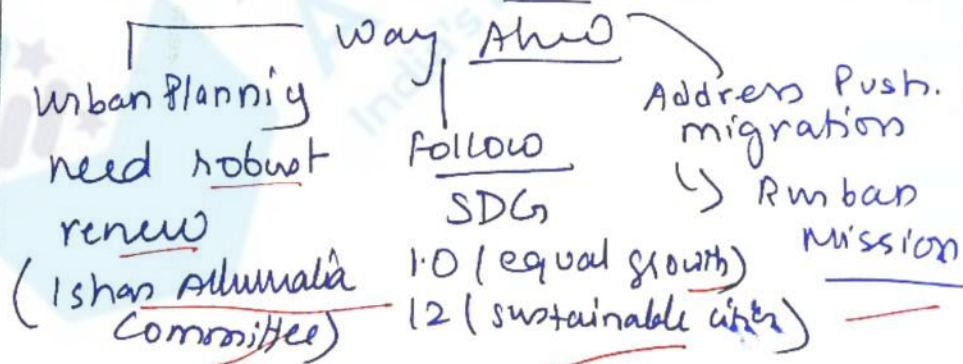 Way Ahead
Urban Planniy
need robust
renew
(Ishan Alluwalia
Committee)
Follow
SDG
10 (equal growth)
12 (sustainable cities)
Address Push.
migration
↳ Rurban
Mission
India's